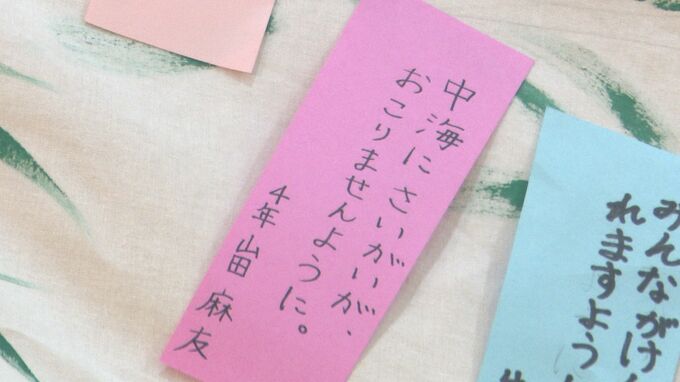 中海にさいがいが、
おこりませんように。
4年 山田 麻友
みんながけ
れますよう